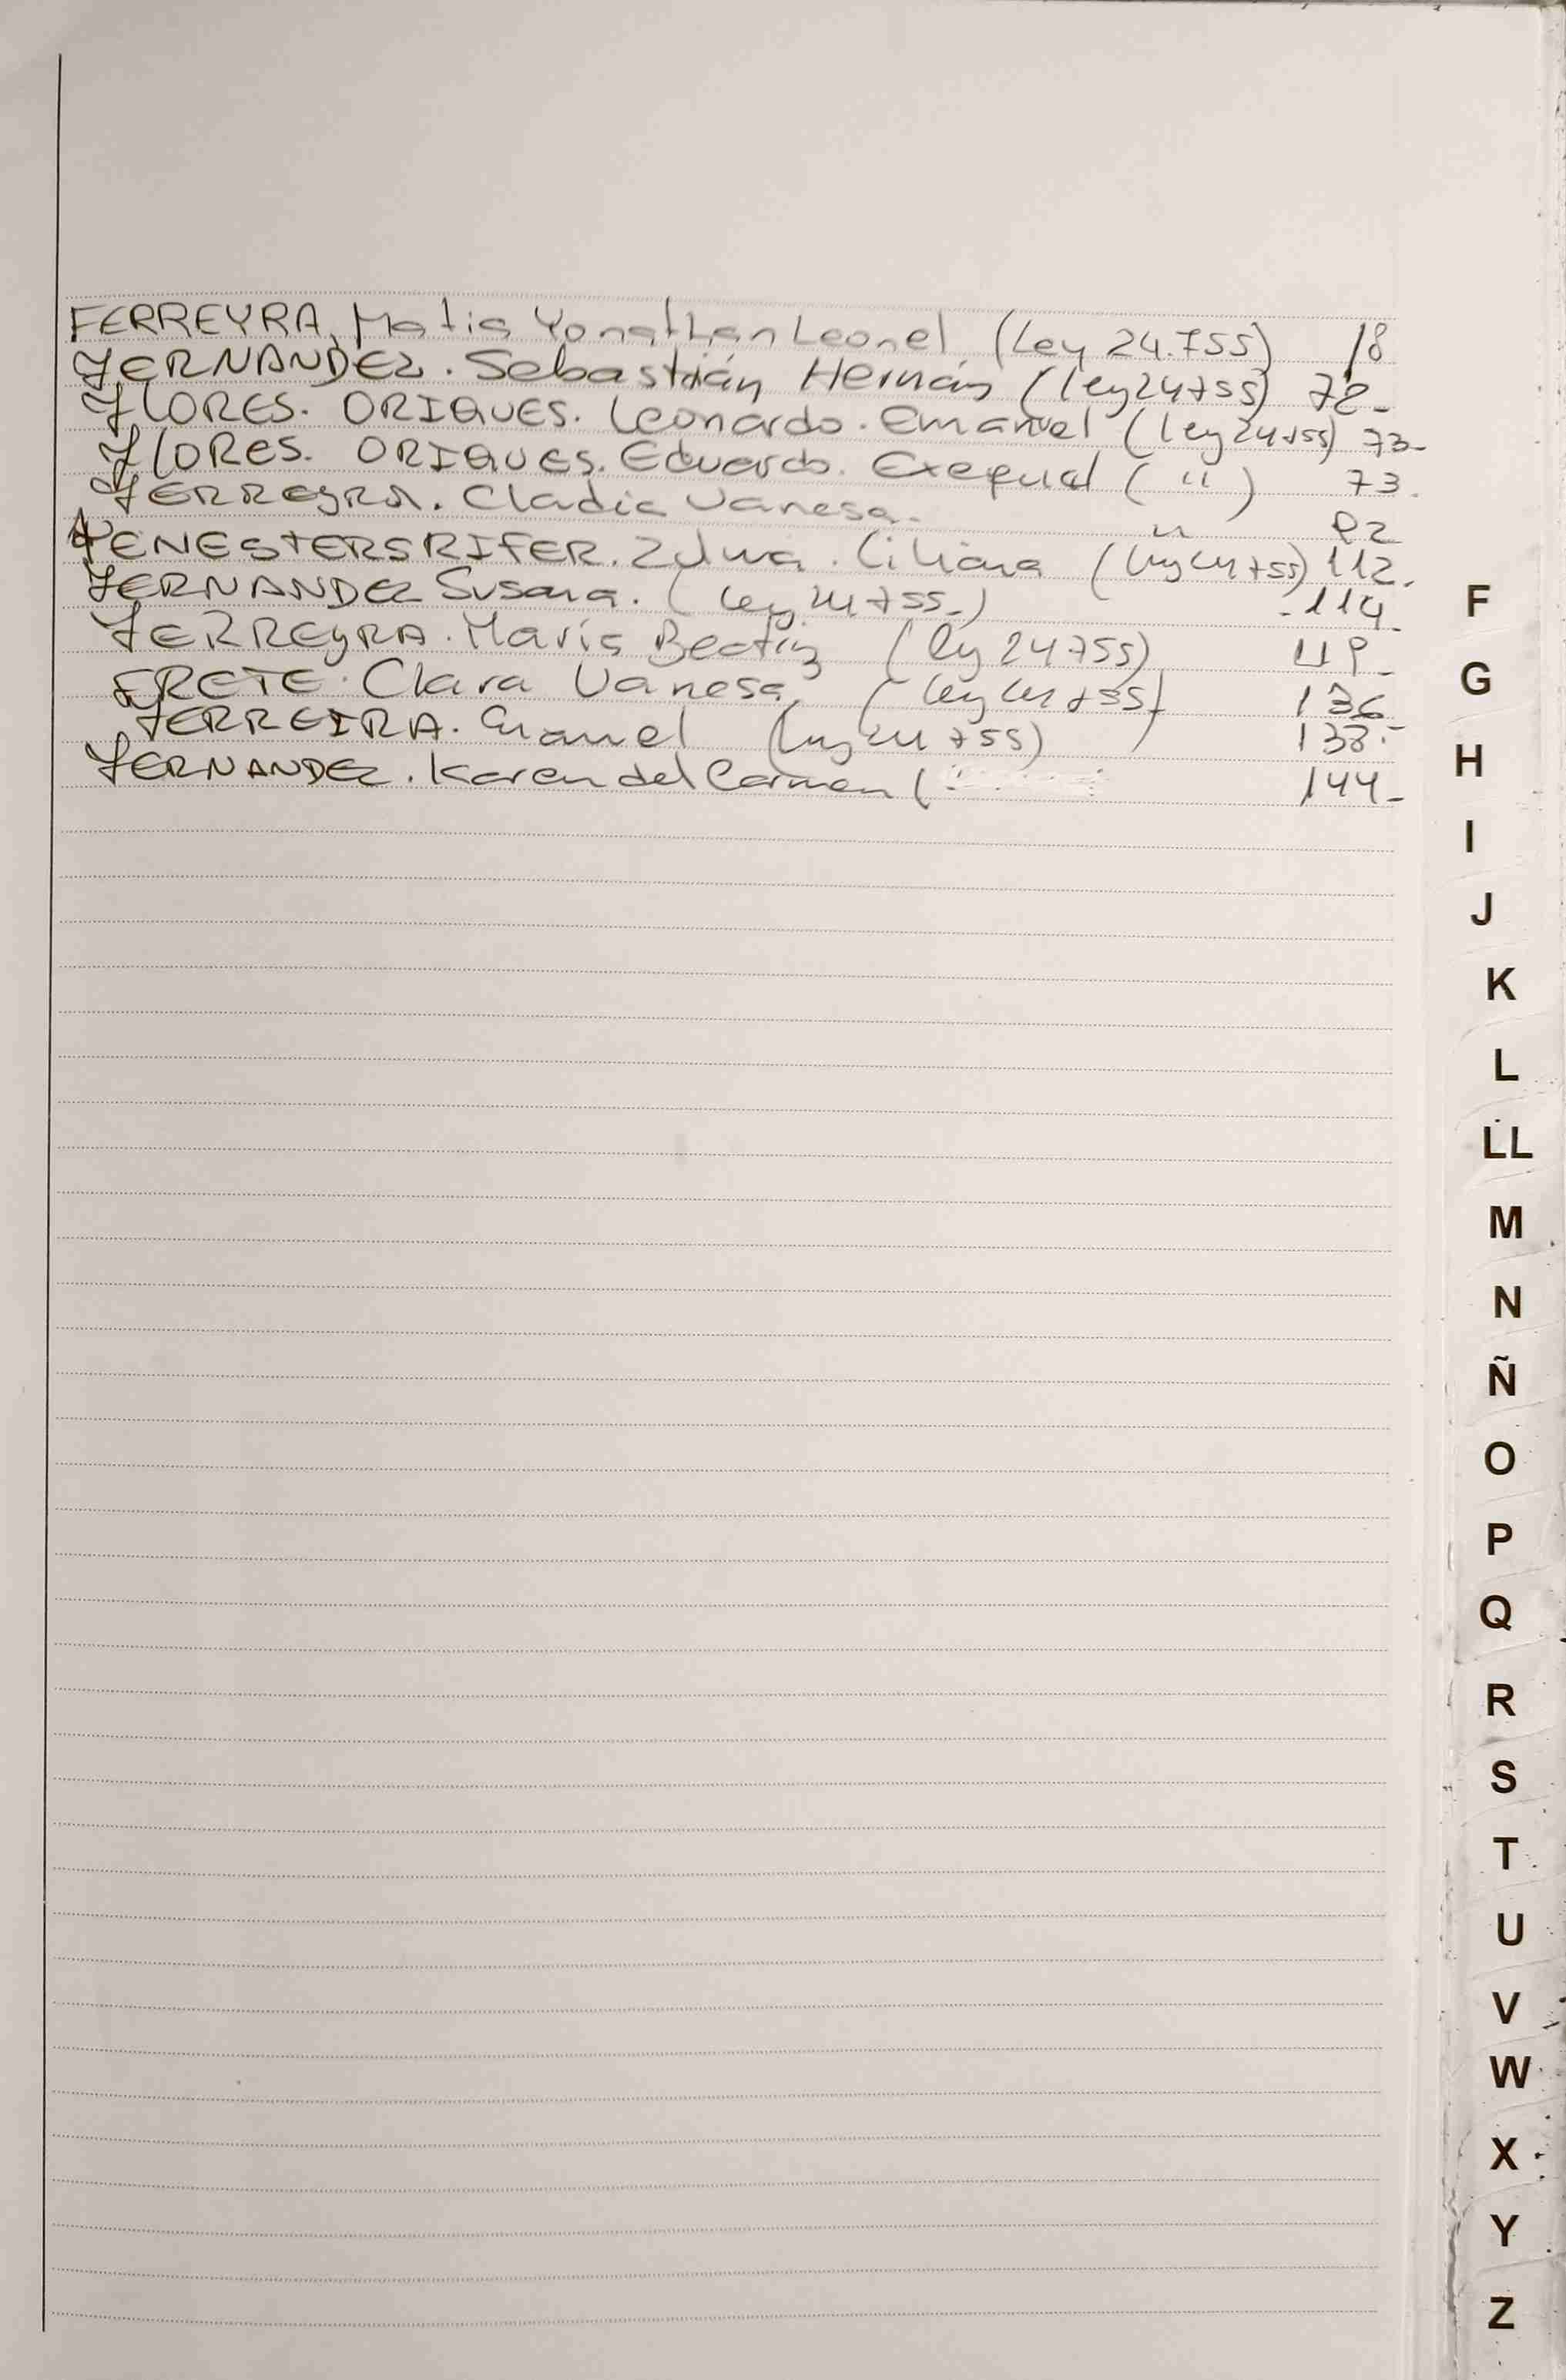 FERREYRA, Matia Yonathan Leonel (Ley 24.755) 18
FERNANDEZ. Sebastián Hernán (ley 24755) 72-
FLORES. ORIQUES. Leonardo. Emanuel (ley 24755) 73-
FLORES. ORIQUES. Eduardo. Exequiel ( " ) 73.
FERREyRA. Cladia Vanesa. " 82
FENESTERSRIFER. Zulma. Liliana (ley 24755) 112.
FERNANDEZ Susana. (ley 24755-) -114-
FERREyRA. María Beatriz (ley 24755) 119-
FRETE. Clara Vanesa (ley 24755) 136
FERREIRA. Emanuel (ley 24755) 138.-
FERNANDEZ. Karen del Carmen ( 144-
F
G
H
I
J
K
L
LL
M
N
Ñ
O
P
Q
R
S
T
U
V
W
X
Y
Z